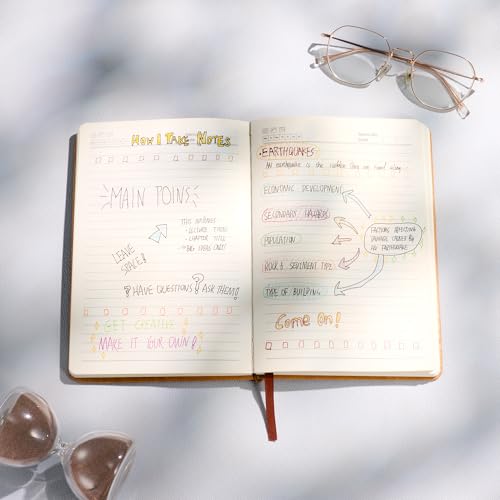 HOW I TAKE NOTES
MAIN POINS
THIS INCLUDES
- CHAPTER TITLE
- BIG IDEAS ONLY!
LEAVE
SPACE!
? HAVE QUESTIONS? ASK THEM!
GET CREATIVE
MAKE IT YOUR OWN!
EARTHQUAKES
AN earthquake is the sudden
ECONOMIC DEVELOPMENT
SECONDARY HAZARDS
POPULATION
ROCK & SEDIMENT TYPE
TYPE OF BUILDING
FACTORS AFFECTING
DAMAGE CAUSED BY
AN EARTHQUAKE
Come On!